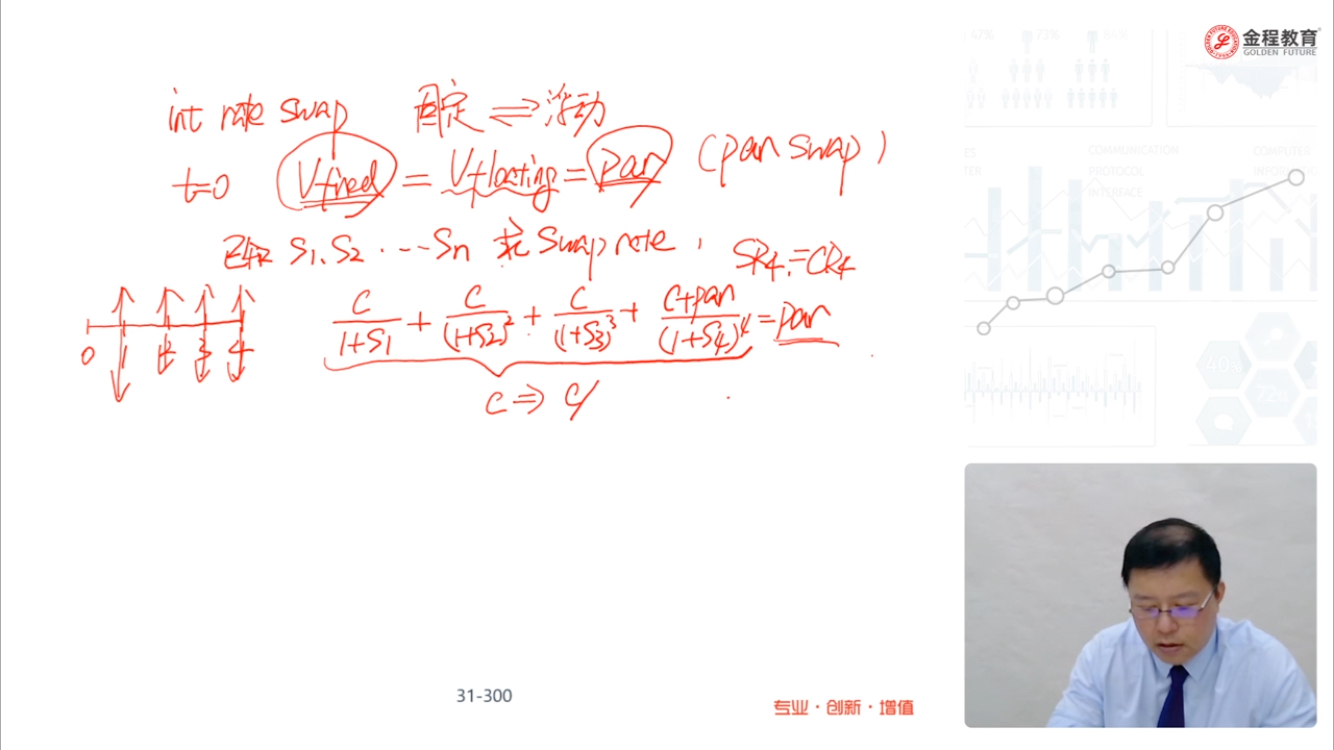 金程教育
GOLDEN FUTURE
int rate swap 固定 ⇌ 浮动
t=0 Vfixed = Vfloating = par (par swap)
已知 S1、S2 ... Sn 求 Swap rate, SR4 = CR4
C/(1+S1) + C/(1+S2)² + C/(1+S3)³ + (C+par)/(1+S4)⁴ = par
0 1 2 3 4
C ⇒ C/
67% 73% 65%
COMMUNICATION
PROTOCOL
INTERFACE
COMPUTER
40%
72%
31-300
专业·创新·增值